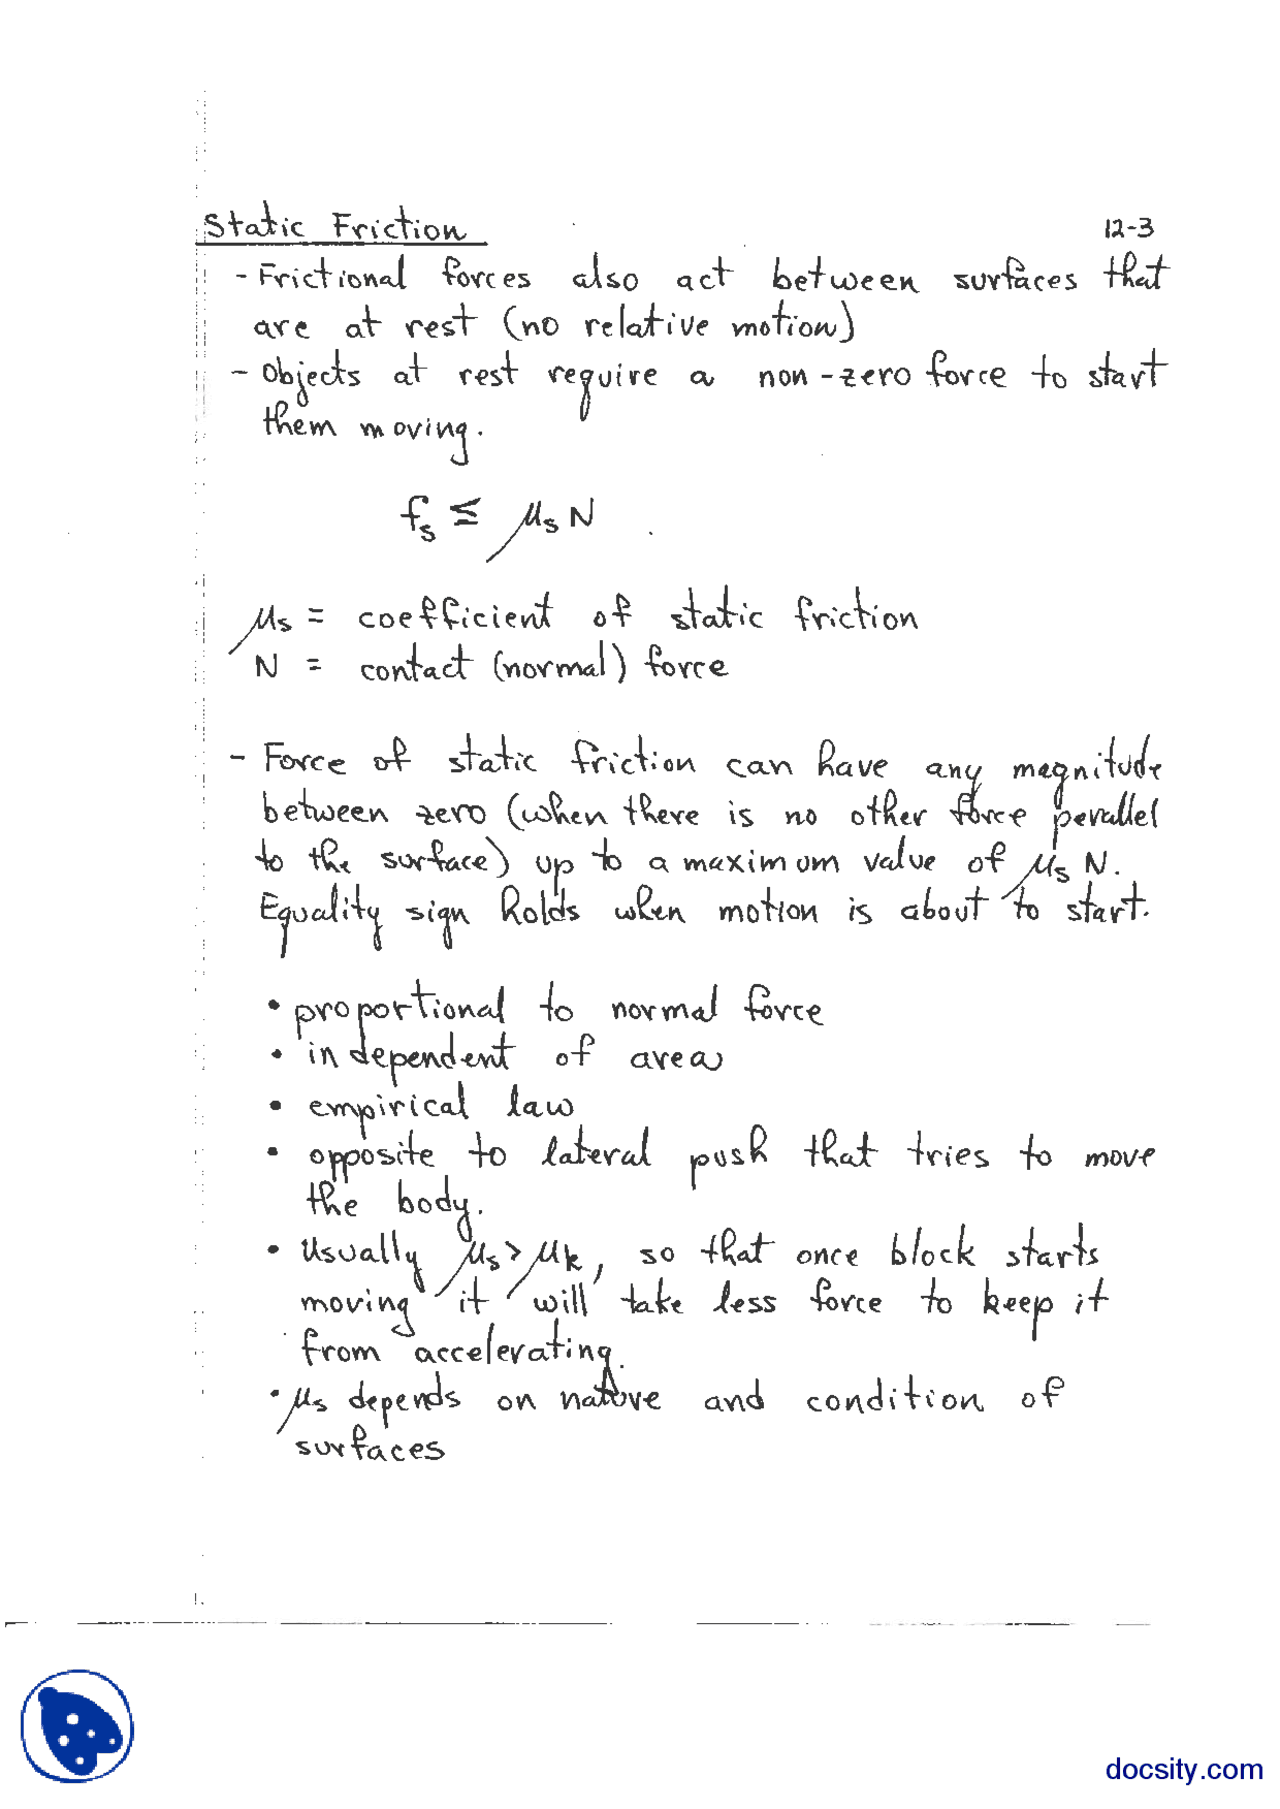 Static Friction 12-3
- Frictional forces also act between surfaces that
are at rest (no relative motion)
- Objects at rest require a non-zero force to start
them moving.
fs ≤ μs N
μs = coefficient of static friction
N = contact (normal) force
- Force of static friction can have any magnitude
between zero (when there is no other force parallel
to the surface) up to a maximum value of μs N.
Equality sign holds when motion is about to start.
• proportional to normal force
• independent of area
• empirical law
• opposite to lateral push that tries to move
the body.
• Usually μs > μk, so that once block starts
moving it will take less force to keep it
from accelerating.
• μs depends on nature and condition of
surfaces
docsity.com